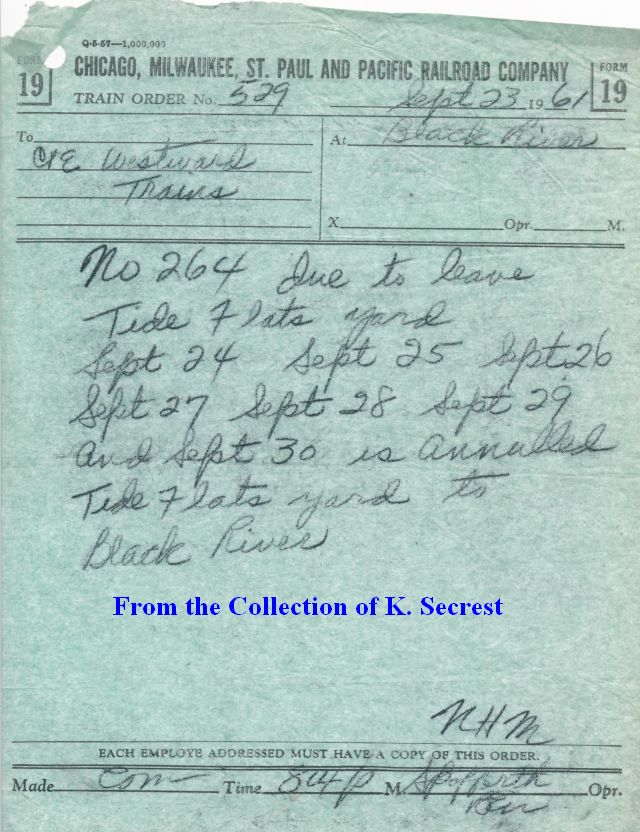 Q-5-57—1,000,000
FORM 19 CHICAGO, MILWAUKEE, ST. PAUL AND PACIFIC RAILROAD COMPANY FORM 19
TRAIN ORDER No. 529 Sept 23 1961
To At Black River
C&E Westward
Trains
X Opr. M.
No 264 due to leave
Tide Flats yard
Sept 24 Sept 25 Sept 26
Sept 27 Sept 28 Sept 29
and Sept 30 is annulled
Tide Flats yard to
Black River
From the Collection of K. Secrest
NHM
EACH EMPLOYE ADDRESSED MUST HAVE A COPY OF THIS ORDER.
Made Com Time 814 P M. Spofforth Opr.